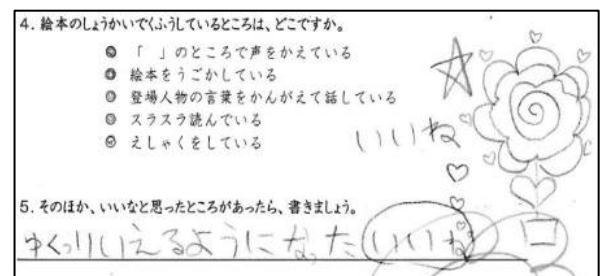 4. 絵本のしょうかいでくふうしているところは、どこですか。
◎ 「 」のところで声をかえている
◎ 絵本をうごかしている
◎ 登場人物の言葉をかんがえて話している
◎ スラスラ読んでいる
◎ えしゃくをしている
いいね
5. そのほか、いいなと思ったところがあったら、書きましょう。
ゆくっりいえるようになった いいね